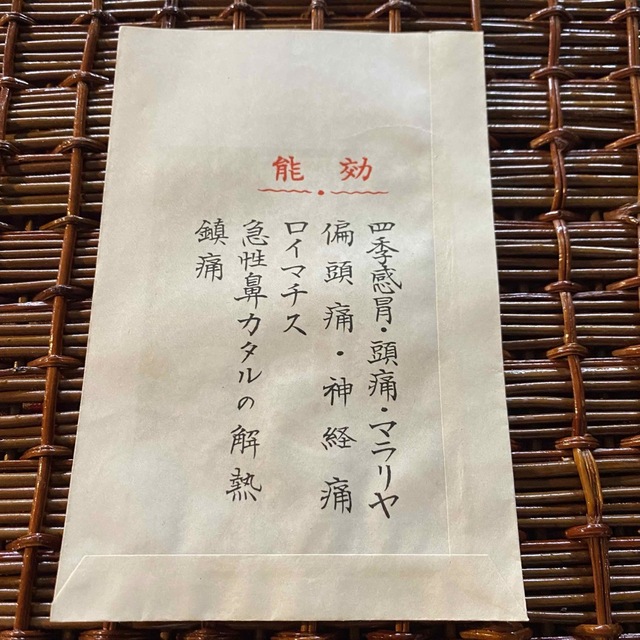 効能
四季感冒・頭痛・マラリヤ
偏頭痛・神経痛
ロイマチス
急性鼻カタルの解熱
鎮痛